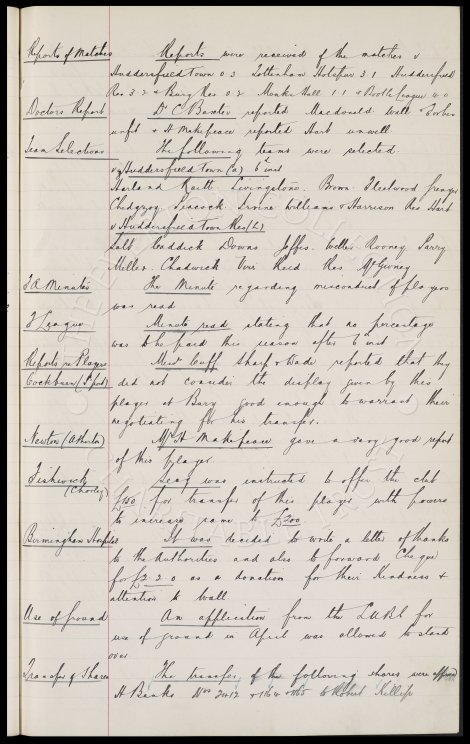 Reports of Matches Reports were received of the matches v
Huddersfield Town 0 3 Tottenham Hotspur 3 1 Huddersfield
Res 3 2 & Bury Res 0 2 Monks Hall 1 1 & Bootle League 4 0
Doctors Report Dr C Baxter reported Macdonald Wall & Forbes
unfit & H Makepeace reported Hart unwell
Team Selections The following teams were selected
v Huddersfield Town (a) 6th inst
Harland Raitt Livingstone Brown Fleetwood
Chedgzoy Peacock Irvine Williams & Harrison Res Hart
v Huddersfield Town Res (L)
Salt Caddick Downs Jeffs Weller Rooney Parry
Miller Chadwick Virr Reid Res McGivney
F A Minutes The Minute regarding misconduct of players
was read
F League Minute read stating that no percentage
was to be paid this season after 6th inst
Reports re Players Messrs Cuff Sharp & Wade reported that they
Cockburn (S'port) did not consider the display given by this
player at Bury good enough to warrant their
negotiating for his transfer.
Newton (Atherton) Mr H Makepeace gave a very good report
of this player
Fishwick Secy was instructed to offer the club
(Chorley) £150 for transfer of this player with powers
to increase same to £200
Birmingham Hospital It was decided to write a letter of thanks
to the Authorities and also to forward Cheque
for £2 2 0 as a donation for their kindness &
attention to Wall
Use of Ground An application from the for
use of ground in April was allowed to stand
over
Transfer of Shares The transfer of the following shares were approved
H Banks Nos 2412 & 1164 & 1165 to Robert Kellip